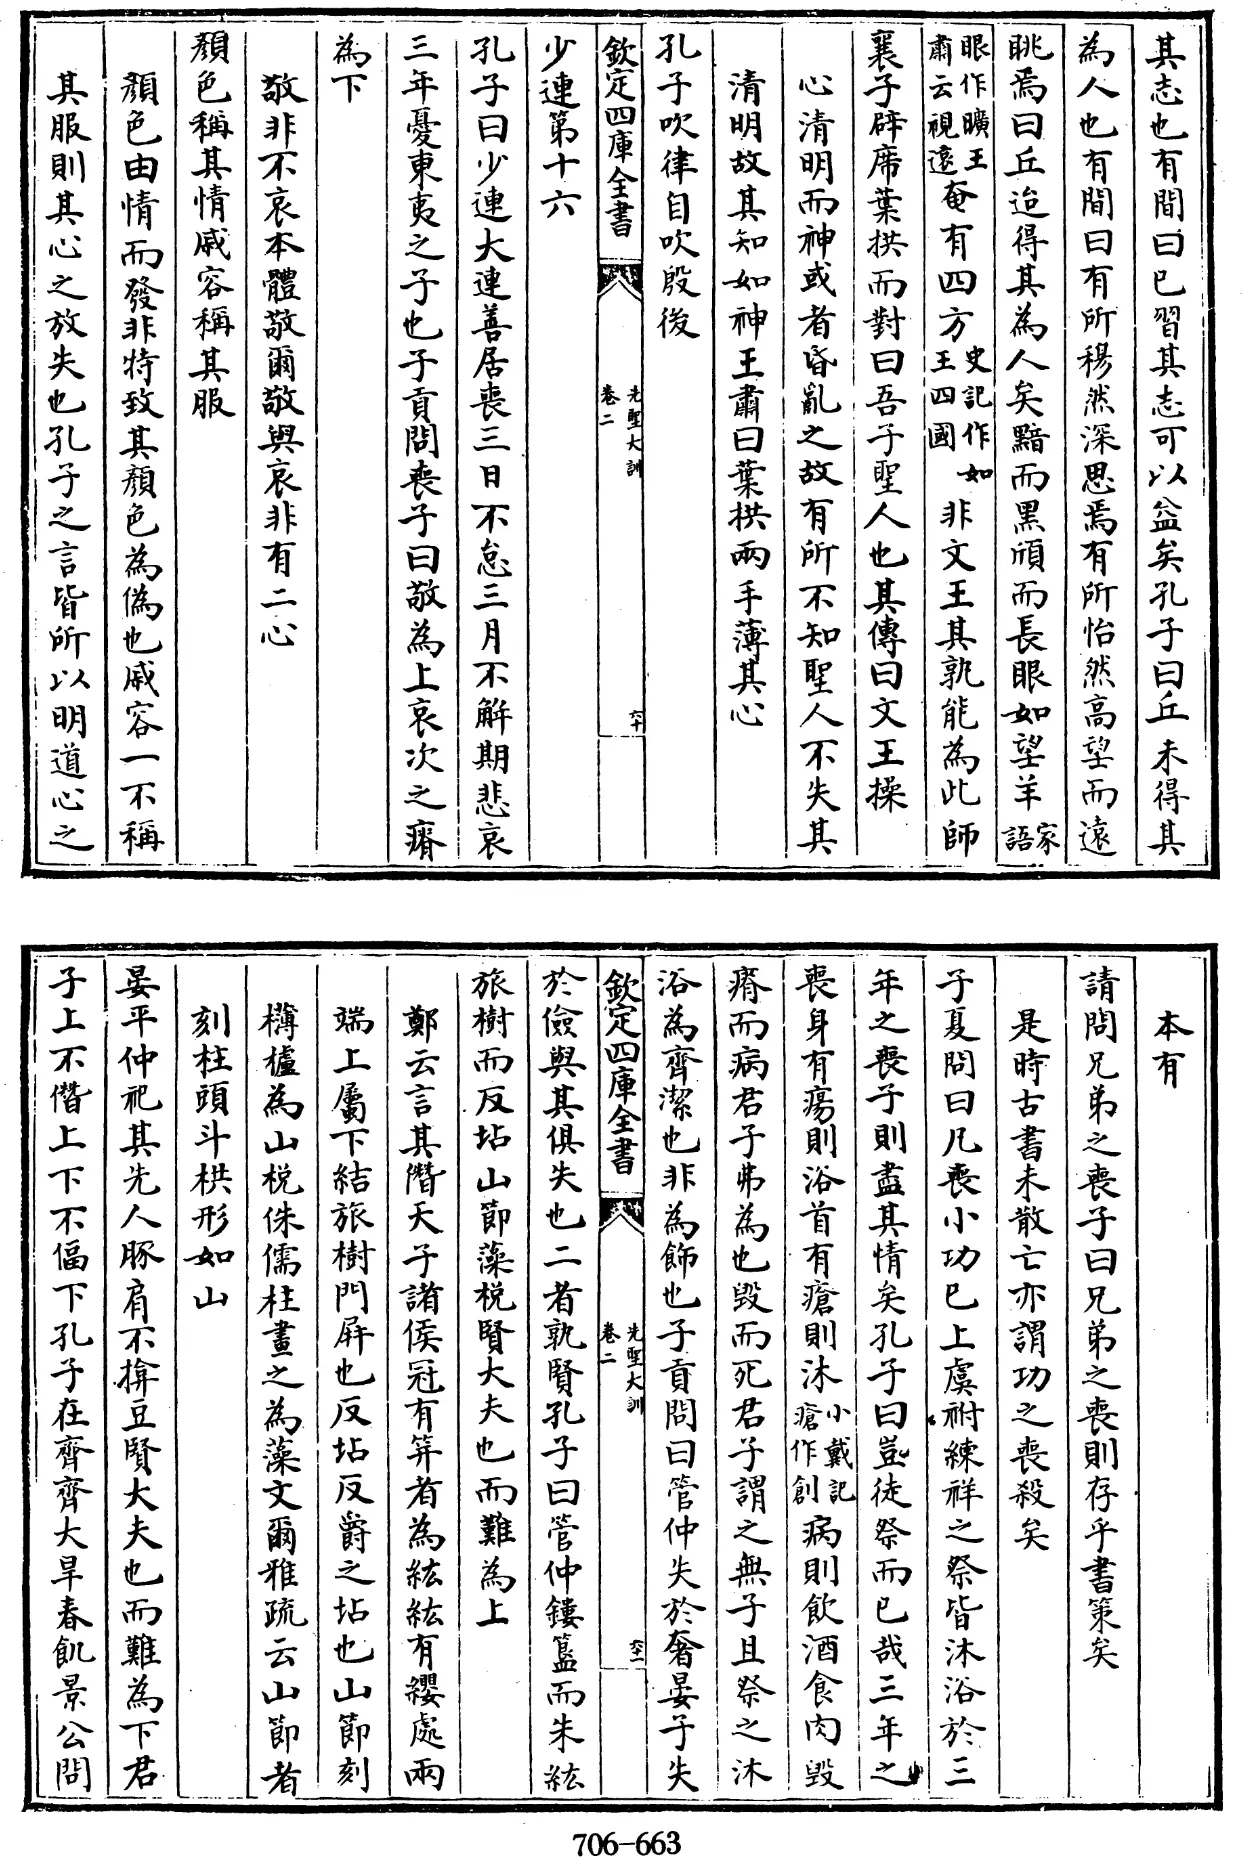 其志也有間曰已習其志可以益矣孔子曰丘未得其
為人也有間曰有所穆然深思焉有所怡然高望而遠
眺焉曰丘迨得其為人矣黯而黑頎而長眼如望羊家語
眼作曠王肅云視遠奄有四方史記作如王四國非文王其孰能為此師
襄子辟席葉拱而對曰吾子聖人也其傳曰文王操
心清明而神或者昏亂之故有所不知聖人不失其
清明故其知如神王肅曰葉拱兩手薄其心
孔子吹律自吹殷後
欽定四庫全書
先聖大訓
卷二
六十
少連第十六
孔子曰少連大連善居喪三日不怠三月不解期悲哀
三年憂東夷之子也子貢問喪子曰敬為上哀次之瘠
為下
敬非不哀本體敬爾敬與哀非有二心
顏色稱其情戚容稱其服
顏色由情而發非特致其顏色為偽也戚容一不稱
其服則其心之放失也孔子之言皆所以明道心之
本有
請問兄弟之喪子曰兄弟之喪則存乎書策矣
是時古書未散亡亦謂功之喪殺矣
子夏問曰凡喪小功已上虞祔練祥之祭皆沐浴於三
年之喪子則盡其情矣孔子曰豈徒祭而已哉三年之
喪身有瘍則浴首有瘡則沐小戴記瘡作創病則飲酒食肉毀
瘠而病君子弗為也毀而死君子謂之無子且祭之沐
浴為齊潔也非為飾也子貢問曰管仲失於奢晏子失
欽定四庫全書
先聖大訓
卷二
六一
於儉與其俱失也二者孰賢孔子曰管仲鏤簋而朱紘
旅樹而反坫山節藻梲賢大夫也而難為上
鄭云言其僭天子諸侯冠有笄者為紘紘有纓處兩
端上屬下結旅樹門屏也反坫反爵之坫也山節刻
欂櫨為山梲侏儒柱畫之為藻文爾雅疏云山節者
刻柱頭斗栱形如山
晏平仲祀其先人豚肩不揜豆賢大夫也而難為下君
子上不僭上下不偪下孔子在齊齊大旱春飢景公問
706-663